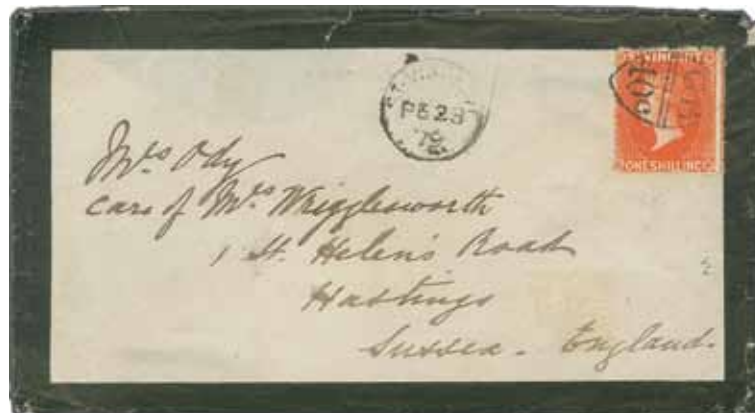 ST VINCENT
ONE SHILLING
FE 23
79
Mrs Ody
care of Mrs Wrigglesworth
1 St. Helen's Road
Hastings
Sussex. England.